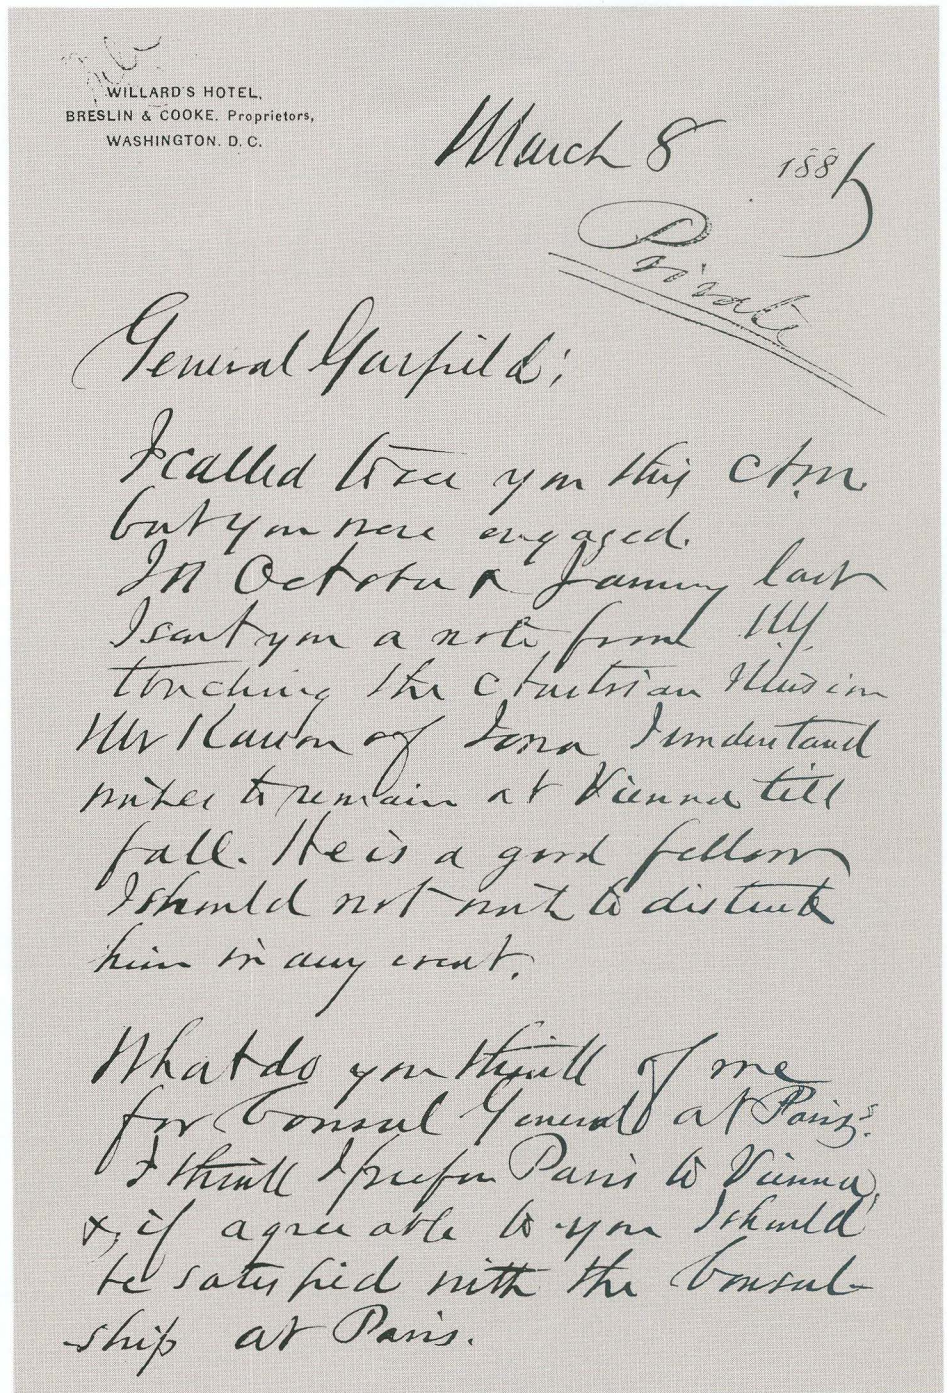 File
WILLARD'S HOTEL,
BRESLIN & COOKE. Proprietors,
WASHINGTON. D. C.
March 8 188
Private
General Garfield:
I called to see you this A.m.
but you were engaged.
In October & January last
I sent you a note from NY
touching the Austrian Mission
Mr Kasson of Iowa I understand
wishes to remain at Vienna till
fall. He is a good fellow
I should not wish to disturb
him in any event.
What do you think of me
for Consul General at Paris?
I think I prefer Paris to Vienna,
&, if agreeable to you I should
be satisfied with the Consul-
-ship at Paris.